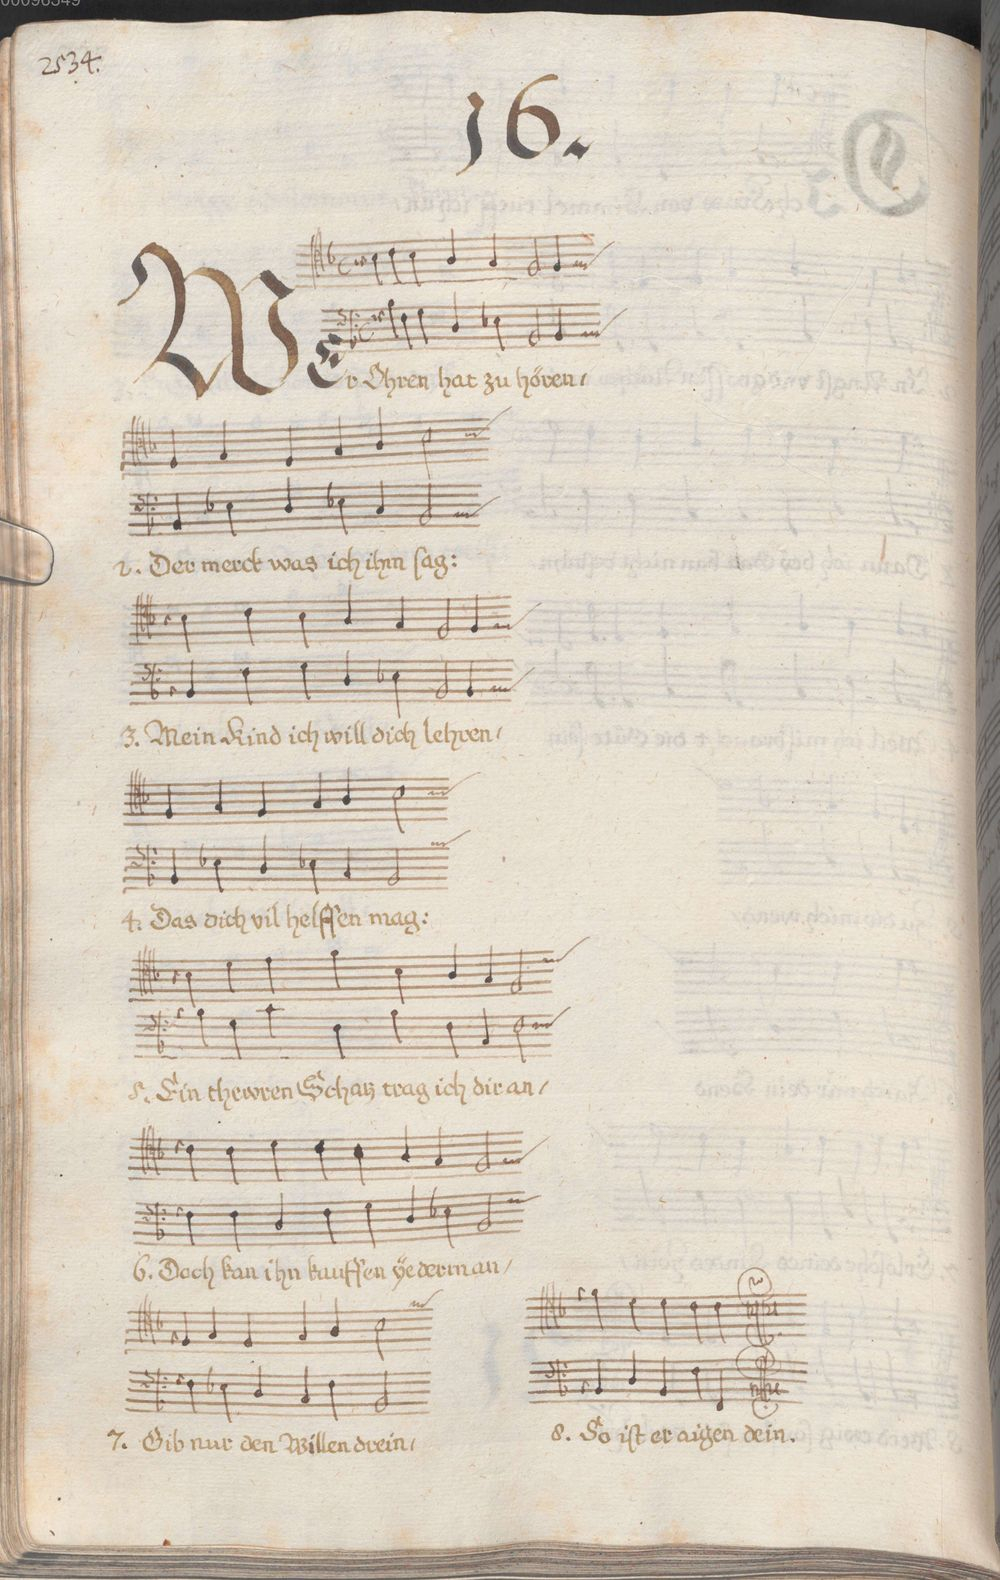 00096549
2534.
16.
WEr Ohren hat zu hören/
2. Der merck was ich ihm sag:
3. Mein Kind ich will dich lehren/
4. Das dich vil helffen mag:
5. Ein thewren Schatz trag ich dir an/
6. Doch kan ihn kauffen ÿederman/
7. Gib nur den Willen drein/
8. So ist er aigen dein.